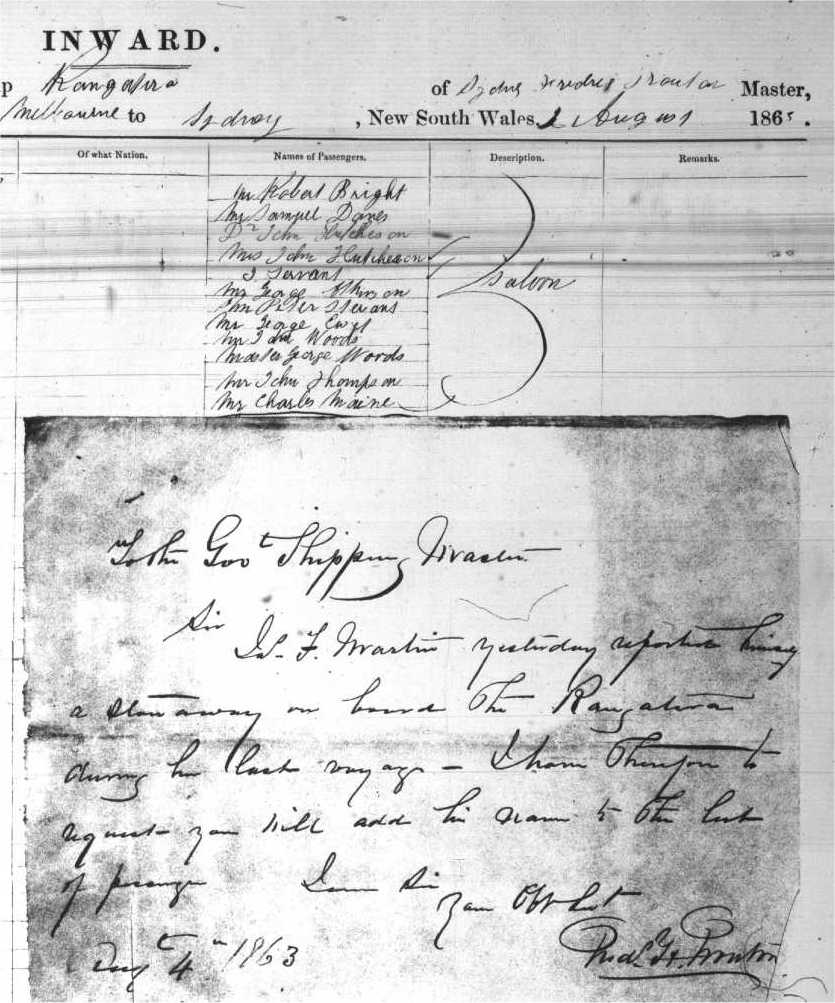 INWARD.
p Rangatira of Sydney Master,
Melbourne to Sydney , New South Wales. 2 August 186
Of what Nation. Names of Passengers. Description. Remarks.
Mr Robert Bright
Mr Samuel
Dr John Hutcheson
Mrs John Hutcheson
Servant
Saloon
Mr George
Mr Peter Stevans
Mr George
Mr John Woods
Master George Woods
Mr John Thompson
Mr Charles Maine
To the Govt Shipping Master
Sir
F. Martin yesterday reported himself
a stowaway on board the Rangatira
during her last voyage – I have therefore to
request you will add his name to the list
of passenger I am Sir
Your Obt
Augt 4th 1863